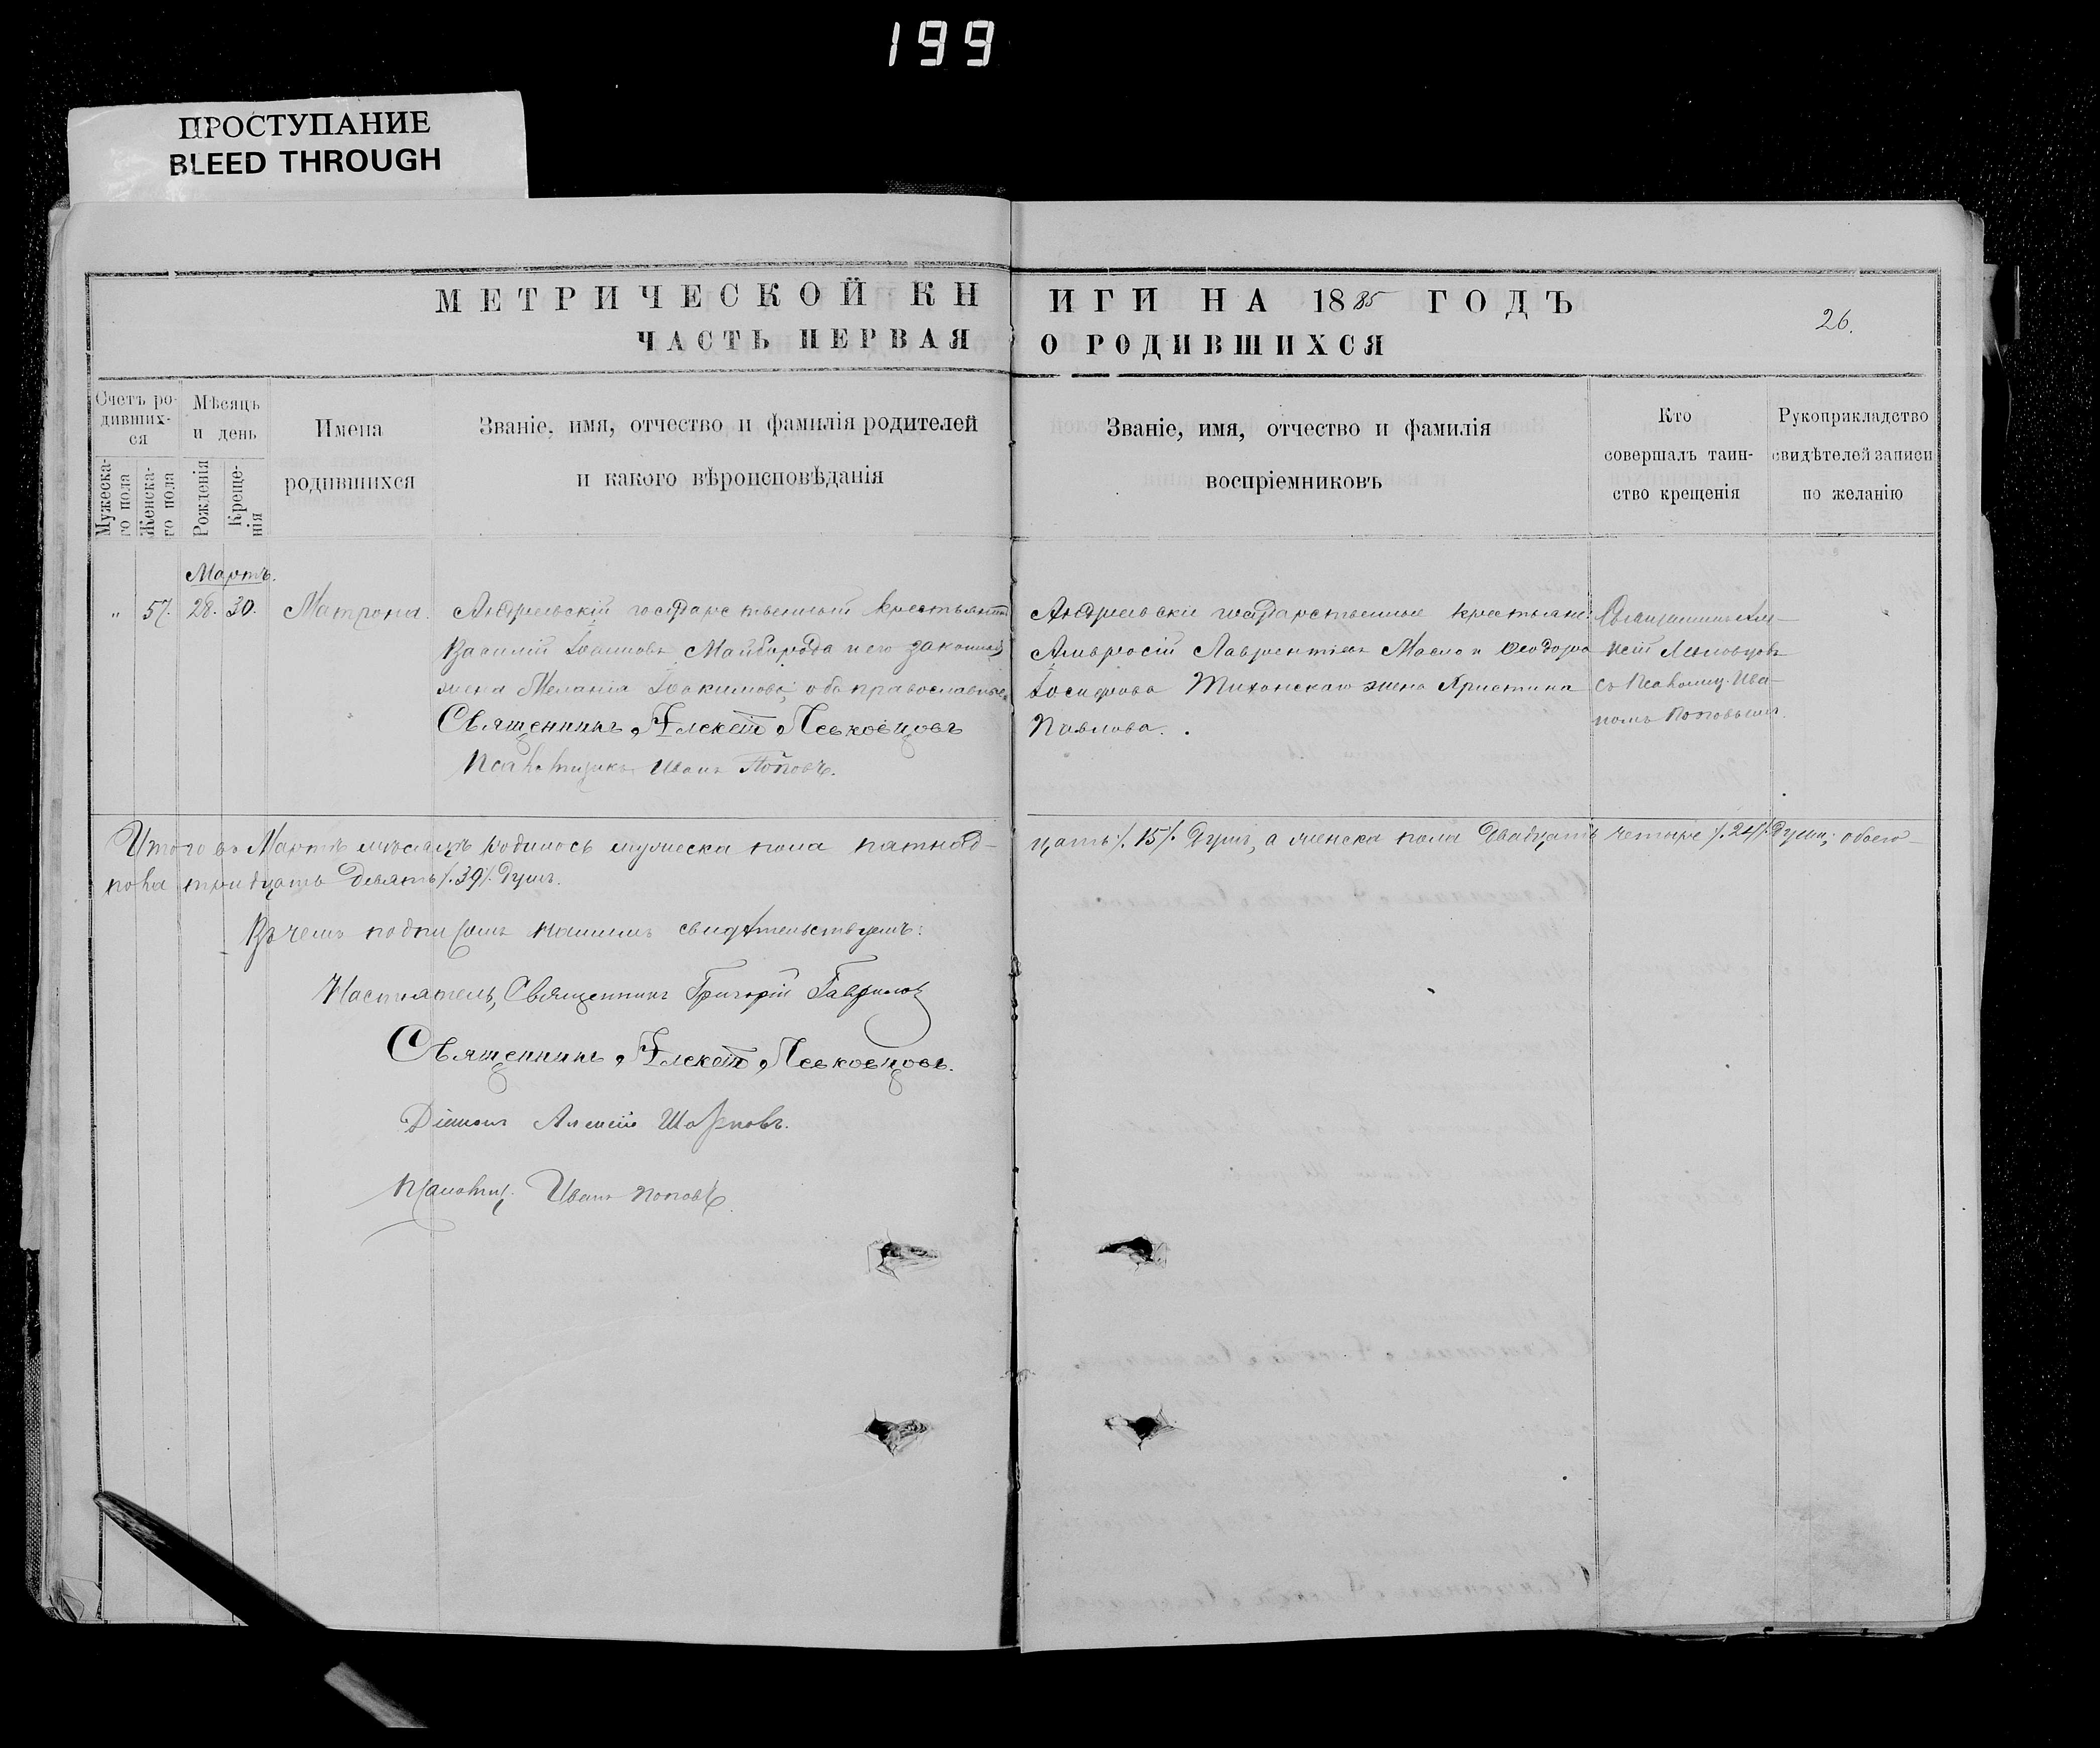 199
ПРОСТУПАНИЕ
BLEED THROUGH
МЕТРИЧЕСКОЙ КНИГИ НА 1885 ГОДЪ
26.
ЧАСТЬ ПЕРВАЯ О РОДИВШИХСЯ
Счетъ ро-
дивших-
ся
Мужеска-
го пола
Женска-
го пола
Мѣсяцъ
и день
Рожденія
Креще-
нія
Имена
родившихся
Званіе, имя, отчество и фамилія родителей
и какого вѣроисповѣданія
Званіе, имя, отчество и фамилія
воспріемниковъ
Кто
совершалъ таин-
ство крещенія
Рукоприкладство
свидѣтелей записи
по желанію
Мартъ.
" 57. 28. 30. Матрона.
Андреевскій государственный крестьянинъ
Василій Іоанновъ Майборода и его законная
жена Меланія Іоакимова; оба православные.
Священникъ Алексій Левковцовъ
Псаломщикъ Иванъ Поповъ.
Андреевскіе государственные крестьяне:
Амвросій Лаврентіевъ Масло и Ѳеодора
Іосифова Тихонскаго жена Христина
Павлова.
Священникъ Але-
ксій Левковцовъ
съ Псаломщ. Ива-
номъ Поповымъ.
Итого въ Мартѣ мѣсяцѣ родилось мужеска пола пятнад-
цать ⁒ 15 ⁒ душъ, а женска пола двадцать четыре ⁒ 24 ⁒ души; обоего
пола тридцать девять ⁒ 39 ⁒ душъ.
Въ чемъ подписомъ нашимъ свидѣтельствуемъ:
Настоятель, Священникъ Григорій Гаврилов
Священникъ Алексій Левковцовъ.
Діаконъ Алексій
Псаломщ. Иванъ Поповъ.